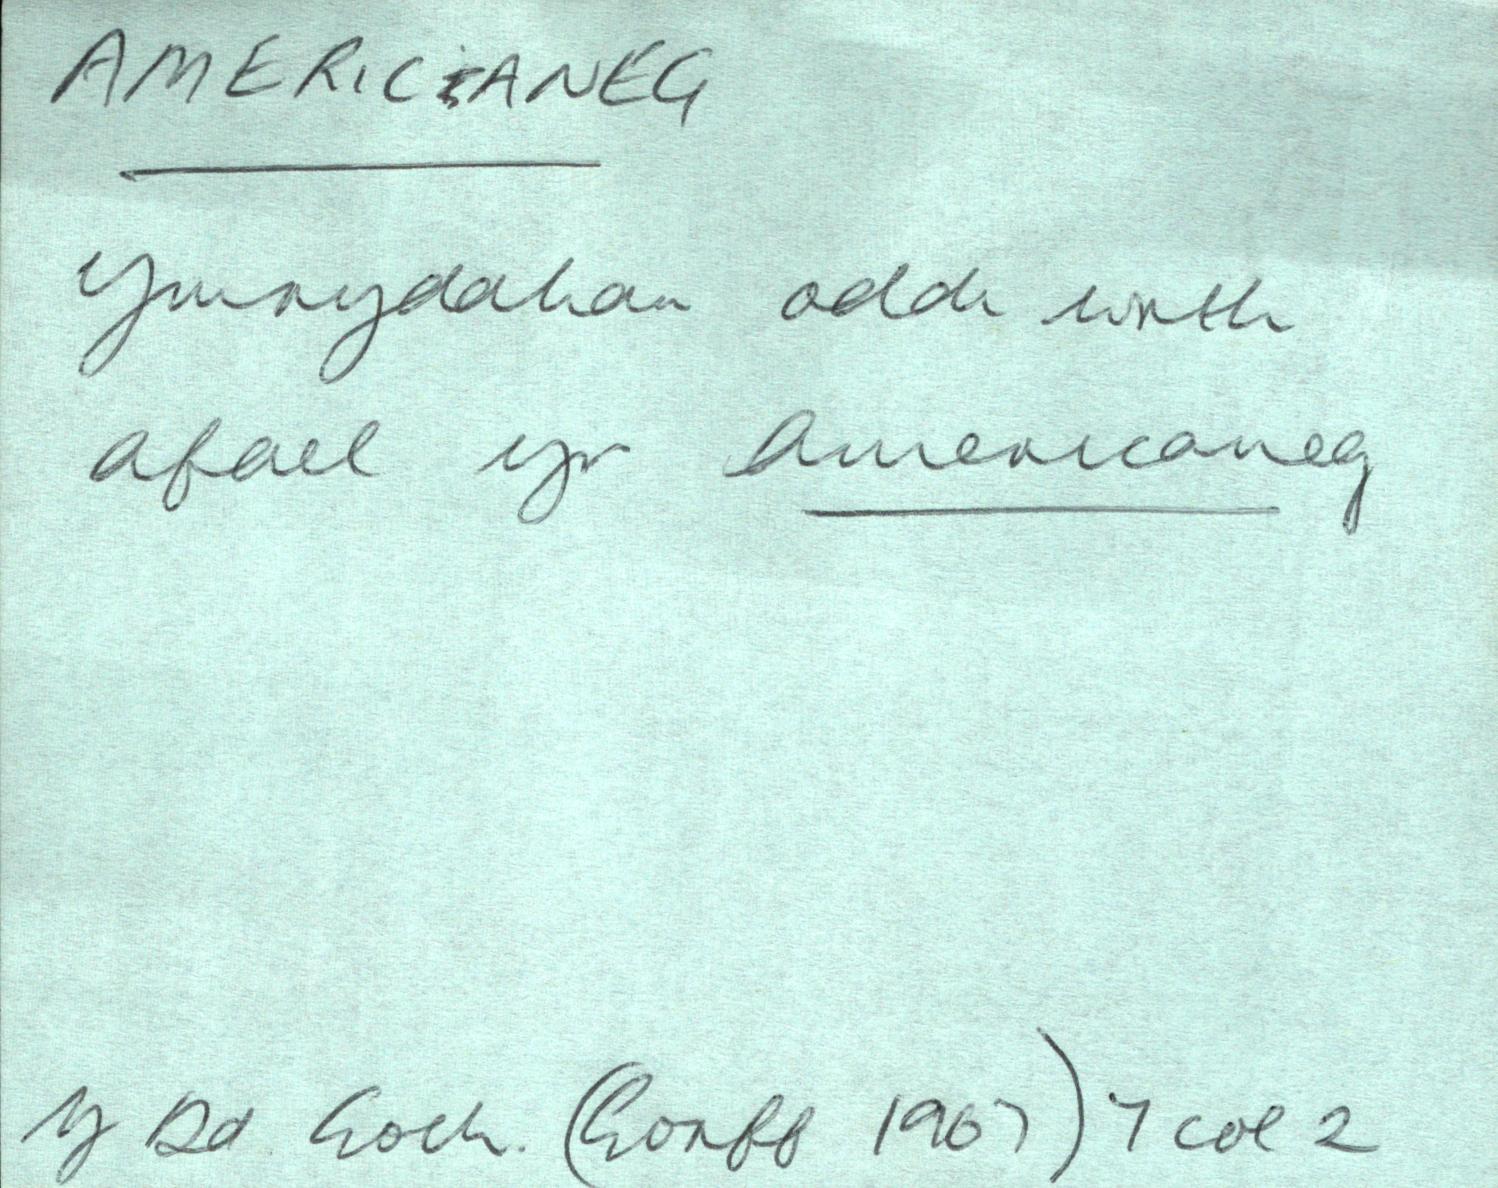 AMERICANEG
Ymrydahau oddi wrth
afael yr Americaneg
Y Dd Goch. (Gorff 1967) 7 col 2